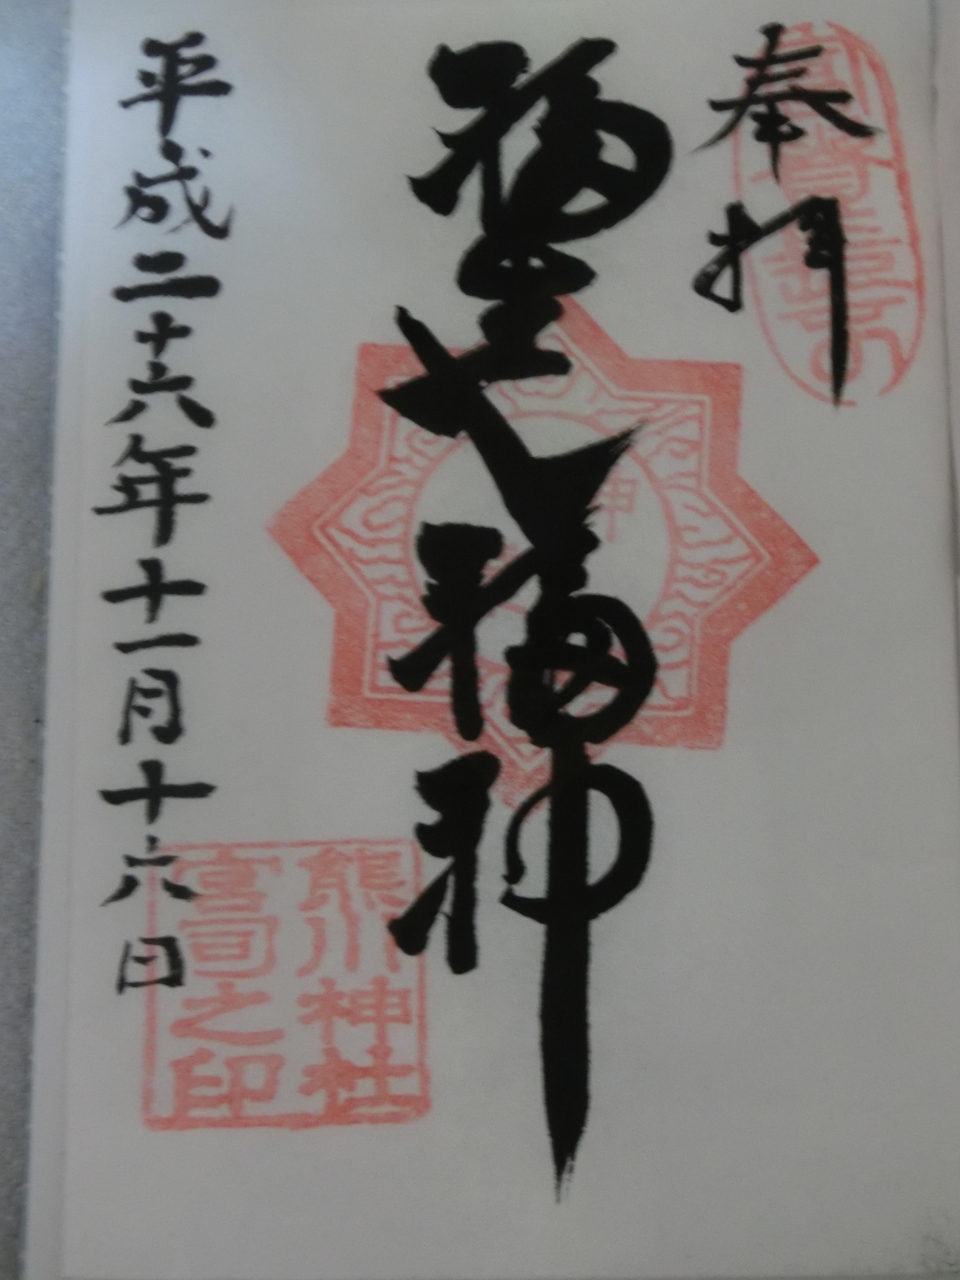 奉拝
福生七福神
平成二十六年十一月十六日
熊川神社
宮司之印